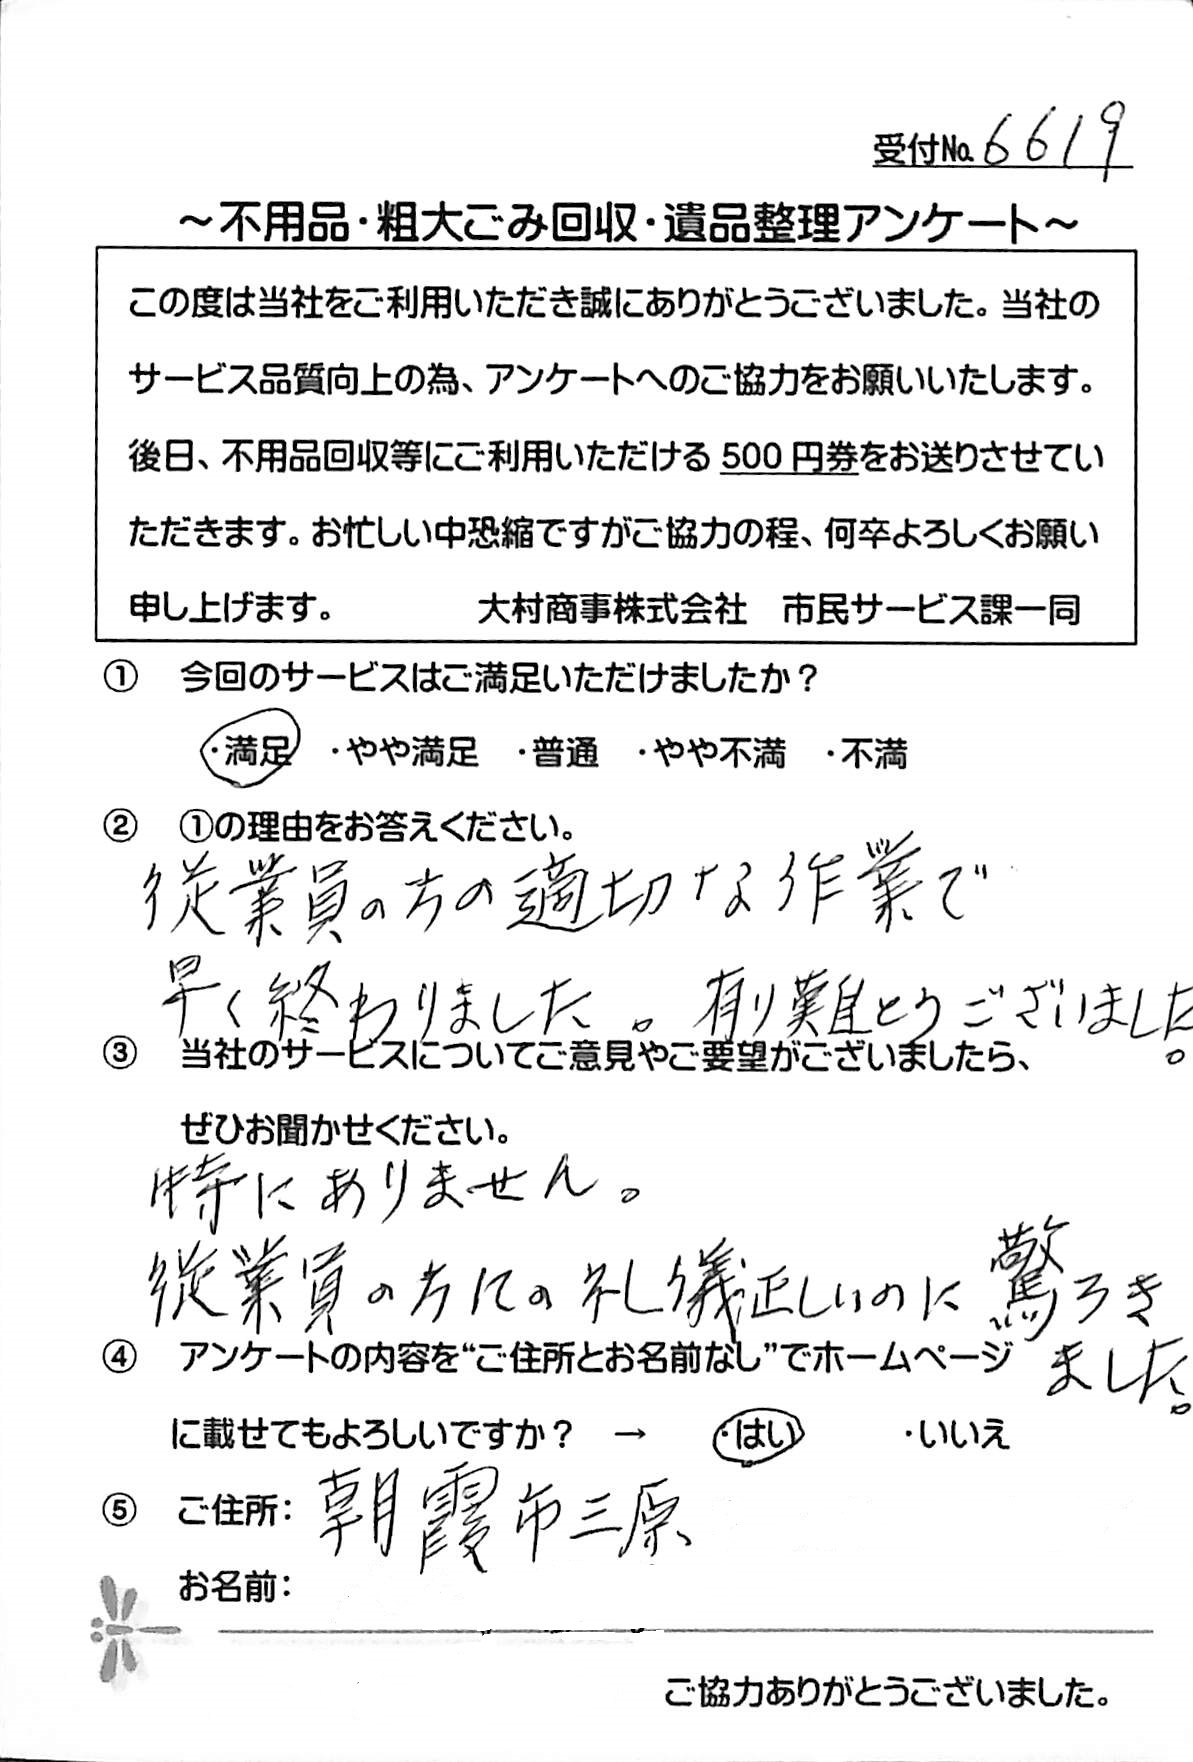 受付No. 6619
～不用品・粗大ごみ回収・遺品整理アンケート～
この度は当社をご利用いただき誠にありがとうございました。当社の
サービス品質向上の為、アンケートへのご協力をお願いいたします。
後日、不用品回収等にご利用いただける 500 円券をお送りさせてい
ただきます。お忙しい中恐縮ですがご協力の程、何卒よろしくお願い
申し上げます。 大村商事株式会社 市民サービス課一同
① 今回のサービスはご満足いただけましたか？
・満足 ・やや満足 ・普通 ・やや不満 ・不満
② ①の理由をお答えください。
従業員の方の適切な作業で
早く終わりました。有り難とうございました。
③ 当社のサービスについてご意見やご要望がございましたら、
ぜひお聞かせください。
特にありません。
従業員の方々の礼儀正しいのに驚ろき
ました。
④ アンケートの内容を“ご住所とお名前なし”でホームページ
に載せてもよろしいですか？ → ・はい ・いいえ
⑤ ご住所： 朝霞市三原
お名前：
ご協力ありがとうございました。